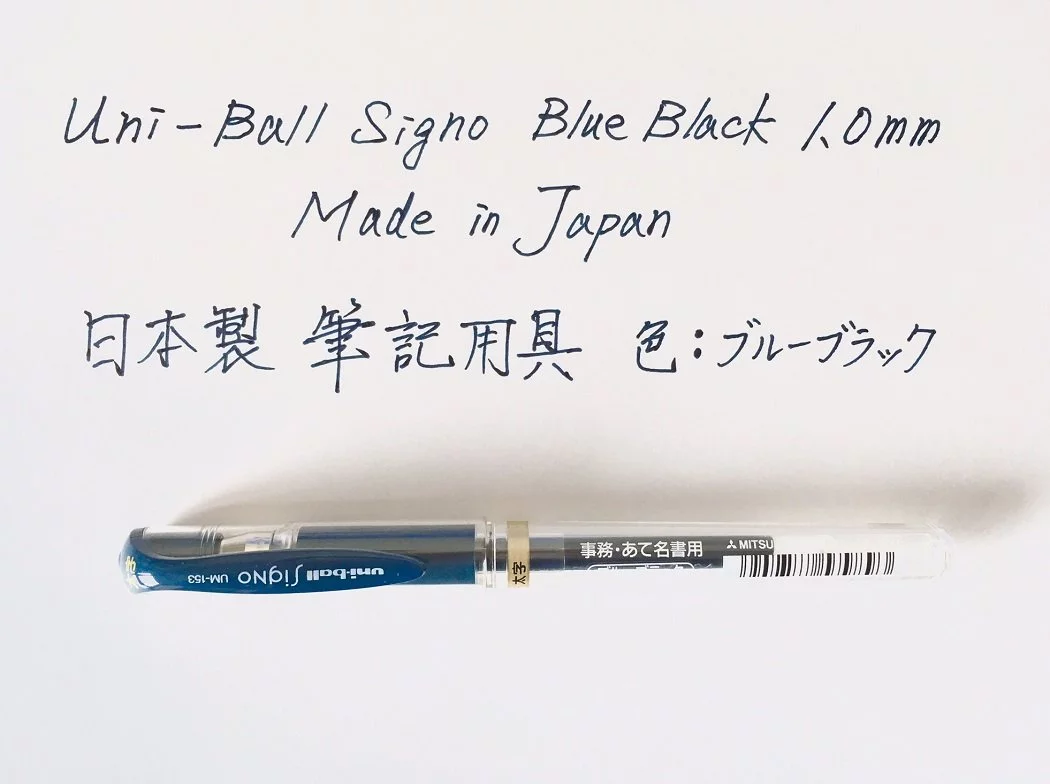 Uni-Ball Signo Blue Black 1.0mm
Made in Japan
日本製 筆記用具 色:ブルーブラック
uni-ball Signo UM-153
太字
事務・あて名書用
MITSU